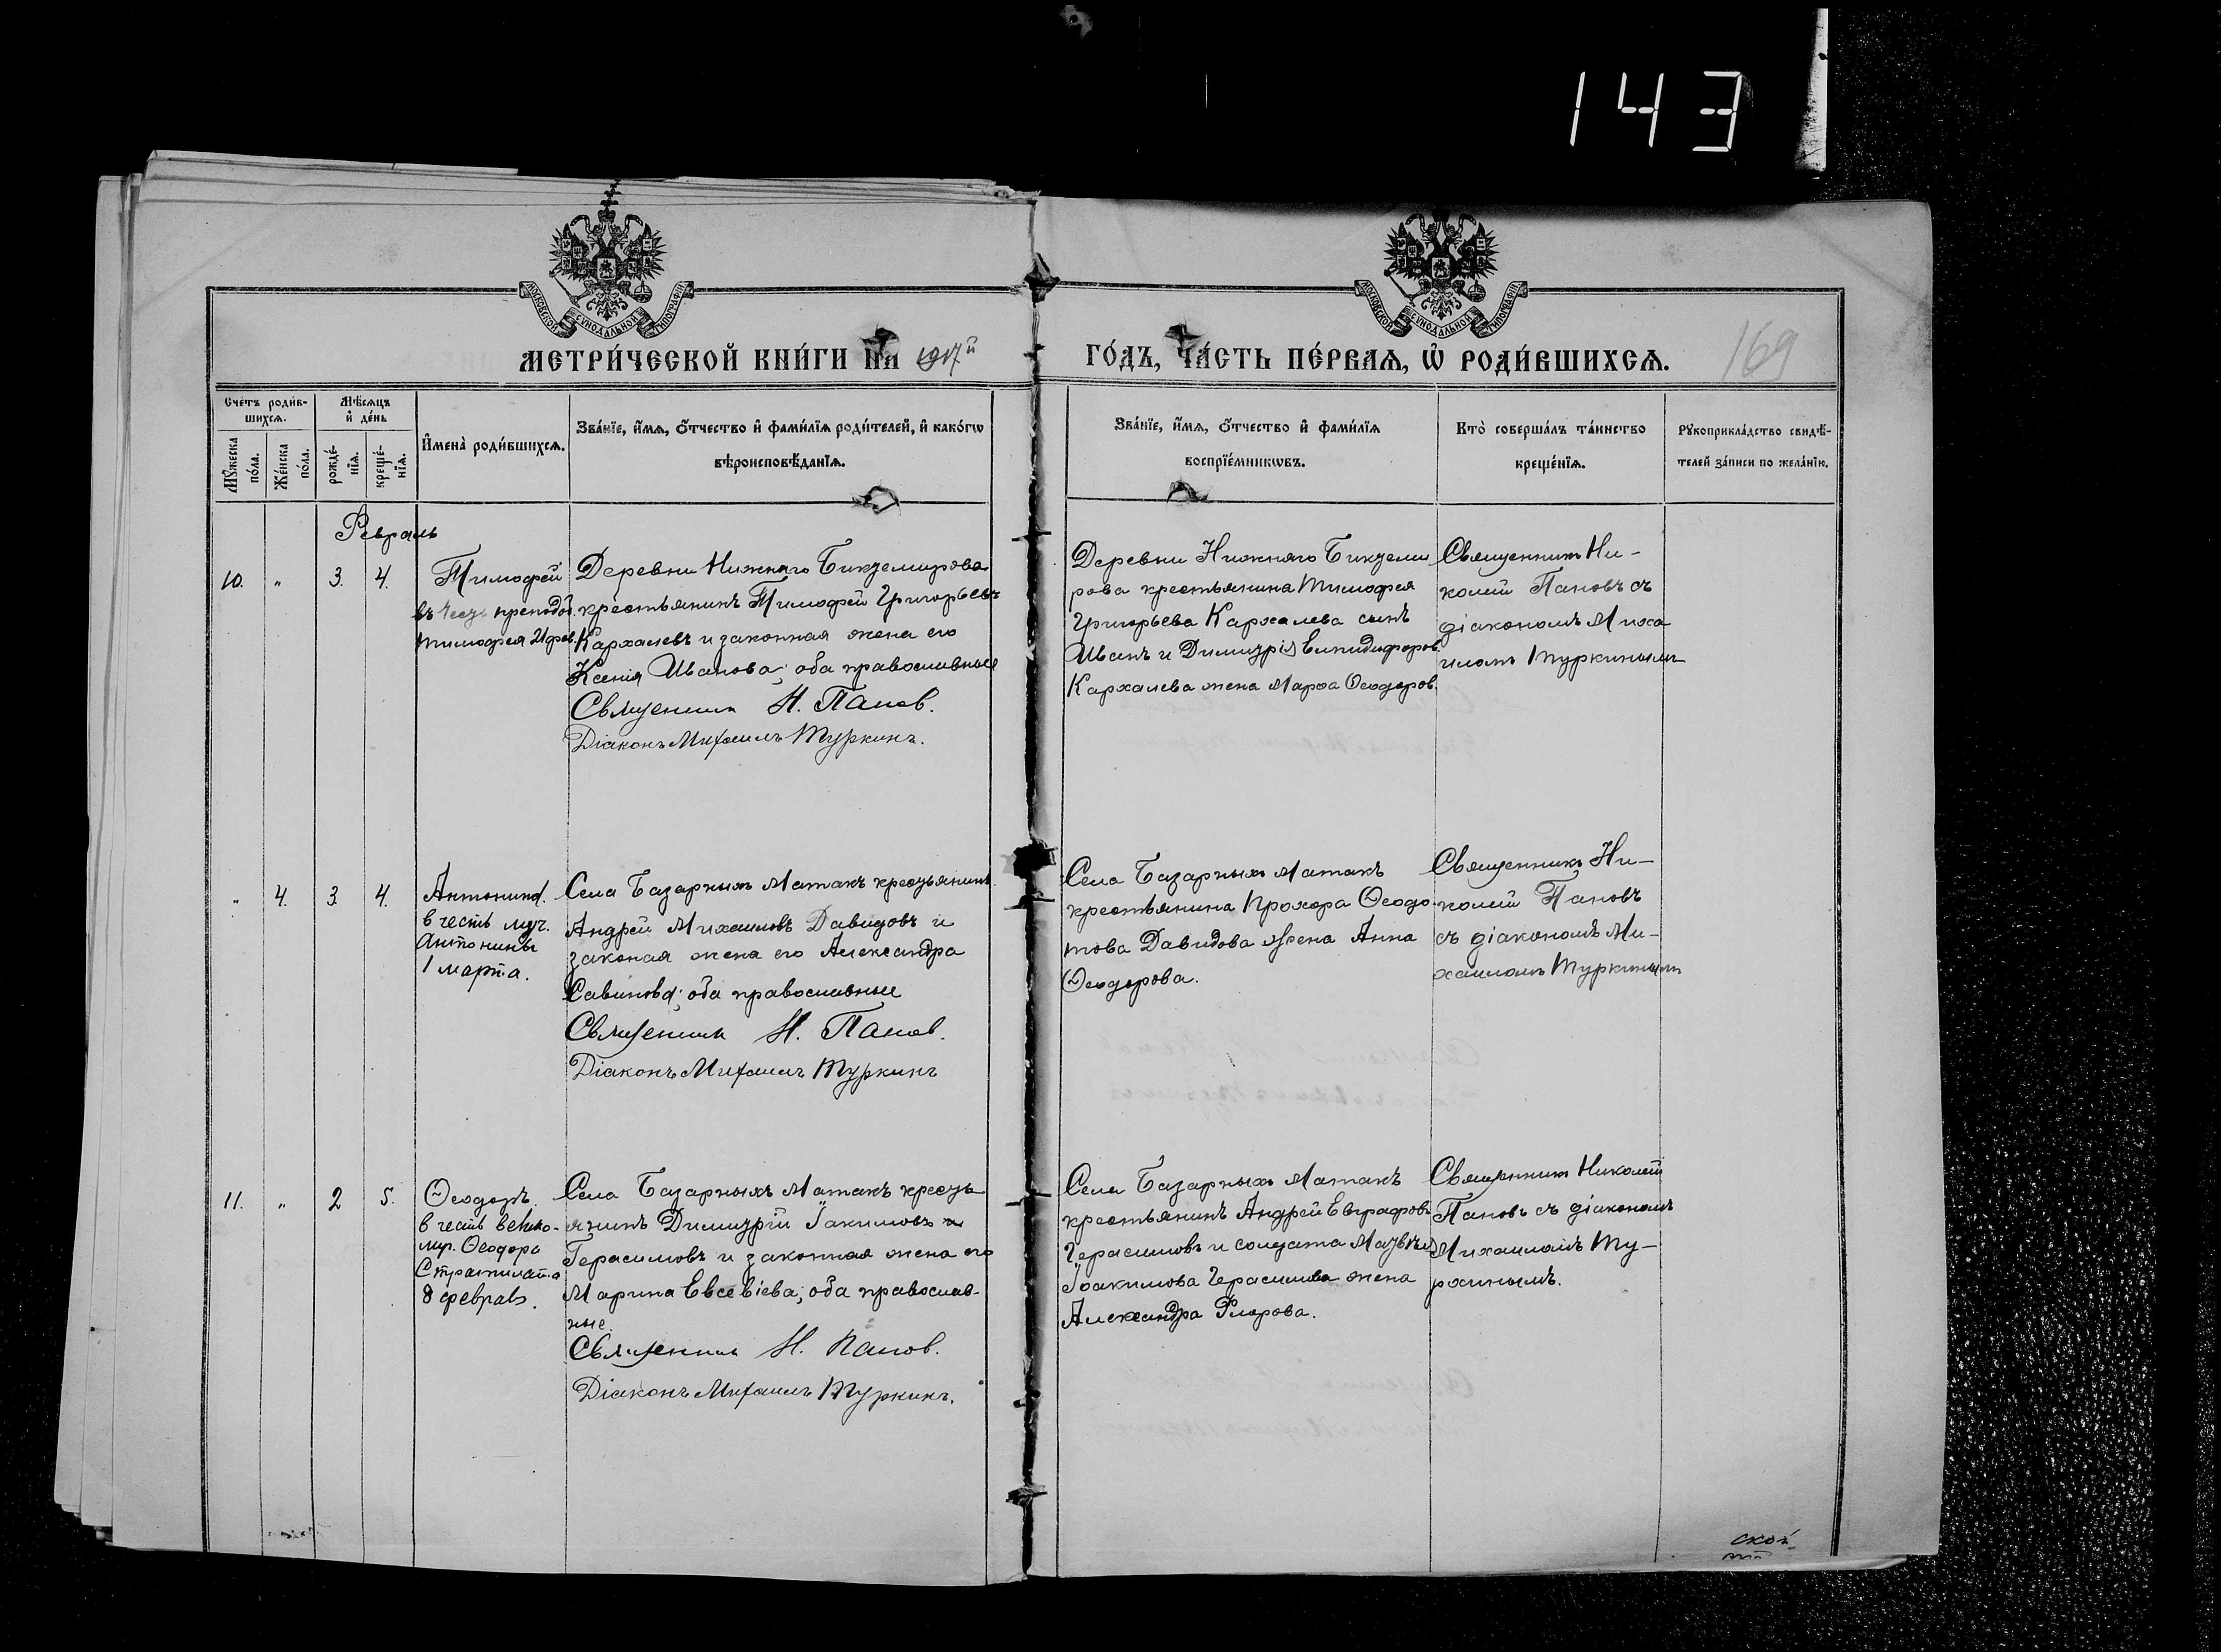 143
МОСКОВСКОЙ СѴНОДАЛЬНОЙ ТИПОГРАФІИ
МОСКОВСКОЙ СѴНОДАЛЬНОЙ ТИПОГРАФІИ
МЕТРИ́ЧЕСКОЙ КНИ́ГИ НА 1917й
ГО́ДЪ, ЧА́СТЬ ПЕ́РВАѦ, Ѽ РОДИ́ВШИХСѦ.
169
Сче́тъ роди́в-
шихсѧ.
Мꙋ́жеска
по́ла.
Же́нска
по́ла.
Мѣ́сѧцъ
и҆ де́нь
рожде́-
нїѧ.
креще́-
нїѧ.
И҆мена̀ роди́вшихсѧ.
Зва́нїе, и҆́мѧ, ѻ҆́тчество и҆ фами́лїѧ роди́телей, и҆ како́гѡ
вѣроисповѣ́данїѧ.
Зва́нїе, и҆́мѧ, ѻ҆́тчество и҆ фами́лїѧ
воспрїе́мникѡвъ.
Кто̀ соверша́лъ та́инство
креще́нїѧ.
Рꙋкоприкла́дство свидѣ́-
телей за́писи по жела́нїю.
Февраль
10. " 3. 4.
Тимофей
въ честь преподоб.
Тимофея 21 фев.
Деревни Нижняго Биктемирова
крестьянинъ Тимофей Григорьевъ
Кархалевъ и законная жена его
Ксенія Иванова; оба православные
Священникъ Н. Панов.
Діаконъ Михаилъ Туркинъ.
Деревни Нижняго Биктеми
рова крестьянина Тимофея
Григорьева Кархалева сынъ
Иванъ и Димитрія Елпидифоров.
Кархалева жена Марѳа Ѳеодоров.
Священникъ Ни-
колай Пановъ съ
діакономъ Миха
иломъ Туркинымъ
" 4. 3. 4.
Антонина.
в честь муч.
Антонины
1 марта.
Села Базарныхъ Матакъ крестьянинъ
Андрей Михаиловъ Давидовъ и
законая жена его Александра
Савинова; оба православные
Священникъ Н. Панов.
Діаконъ Михаилъ Туркинъ
Села Базарныхъ Матакъ
крестьянина Прохора Ѳеодо
това Давидова жена Анна
Ѳеодорова.
Священникъ Ни-
колай Пановъ
съ діакономъ Ми-
хаиломъ Туркинымъ
11. " 2 5.
Ѳеодоръ.
в честь велико-
муч. Ѳеодора
Стратилата
8 февраля.
Села Базарныхъ Матакъ кресть
янинъ Димитрій Іакимовъ
Герасимовъ и законная жена его
Марина Евсевіева; оба православ-
ные.
Священникъ Н. Панов.
Діаконъ Михаилъ Туркинъ.
Села Базарныхъ Матакъ
крестьянинъ Андрей Евграфовъ
Герасимовъ и солдата Матвѣя
Іоакимова Герасимова жена
Александра Флорова.
Священникъ Николай
Пановъ съ діакономъ
Михаиломъ Ту-
ркинымъ.
ской